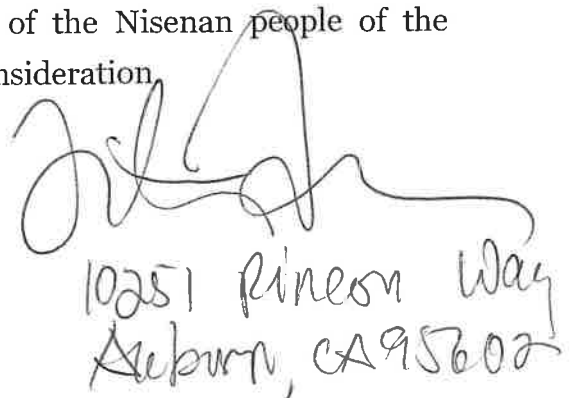 of the Nisenan people of the
nsideration
10251 Rincon Way
Auburn, CA 95602